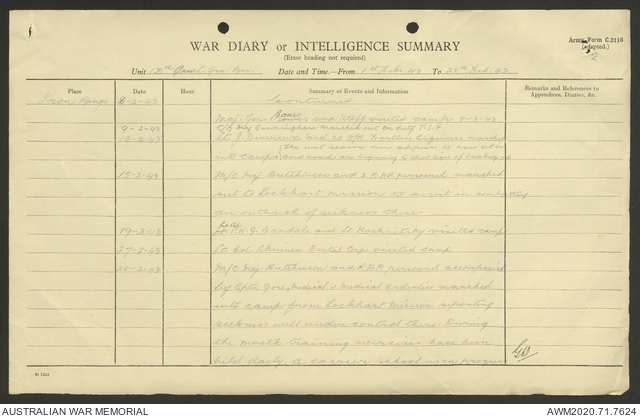 Army Form C.2118
(adapted.)
2
WAR DIARY or INTELLIGENCE SUMMARY
(Erase heading not required)
Unit Date and Time—From 1st Feb. 43 To 28th Feb. 43
Place Date Hour Summary of Events and Information Remarks and References to Appendices, Diaries, &c.
Iron Range 8-2-43 Continued
Maj. Gen. and staff visited camp 8-2-43
9-2-43 C/O Maj Cunningham marched out on duty T.S.F
10-2-43 Lt. J. and 20 O/R Frontier Engineers marched
(The wet season now appears to have set in
into camp (and roads are beginning to show signs of breaking up
15-2-43 M/O Maj. Hutchinson and 2 R.A.P. personnel marched
out to Lockhart Mission to assist in combatting
an outbreak of sickness there
19-2-43 Lt. Col. N. J. and Lt. visited camp
27-2-43 Lt. Col Skinner Dental Corp visited camp
28-2-43 M/O Maj. Hutchinson and R.A.P. personnel accompanied
by Capt. Gore, Medical & Medical Orderlies marched
into camp from Lockhart Mission reporting
sickness well under control there. During
the month training exercises have been
held daily, a carrier school is in progress
AUSTRALIAN WAR MEMORIAL
AWM2020.71.7624